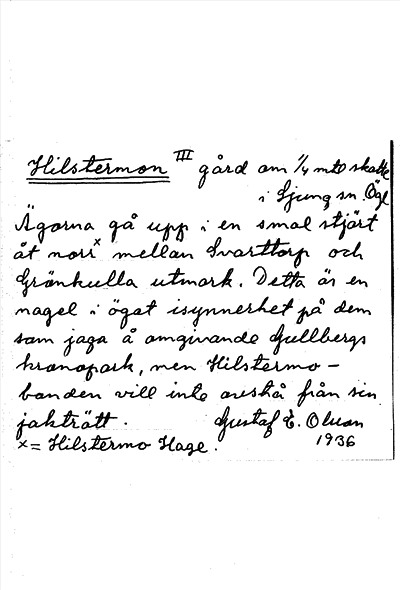 Hilstermon III gård om 1/4 mtl skatte
i Ljung sn Ögl
Ägorna gå upp i en smal stjärt
åt norr x mellan Svarttorp och
Grönkulla utmark. Detta är en
nagel i ögat isynnerhet på dem
som jaga å omgivande Gullbergs
kronopark, men Hilstermo-
bonden vill inte avstå från sin
jakträtt. Gustaf E. Olson
x = Hilstermo Hage. 1936